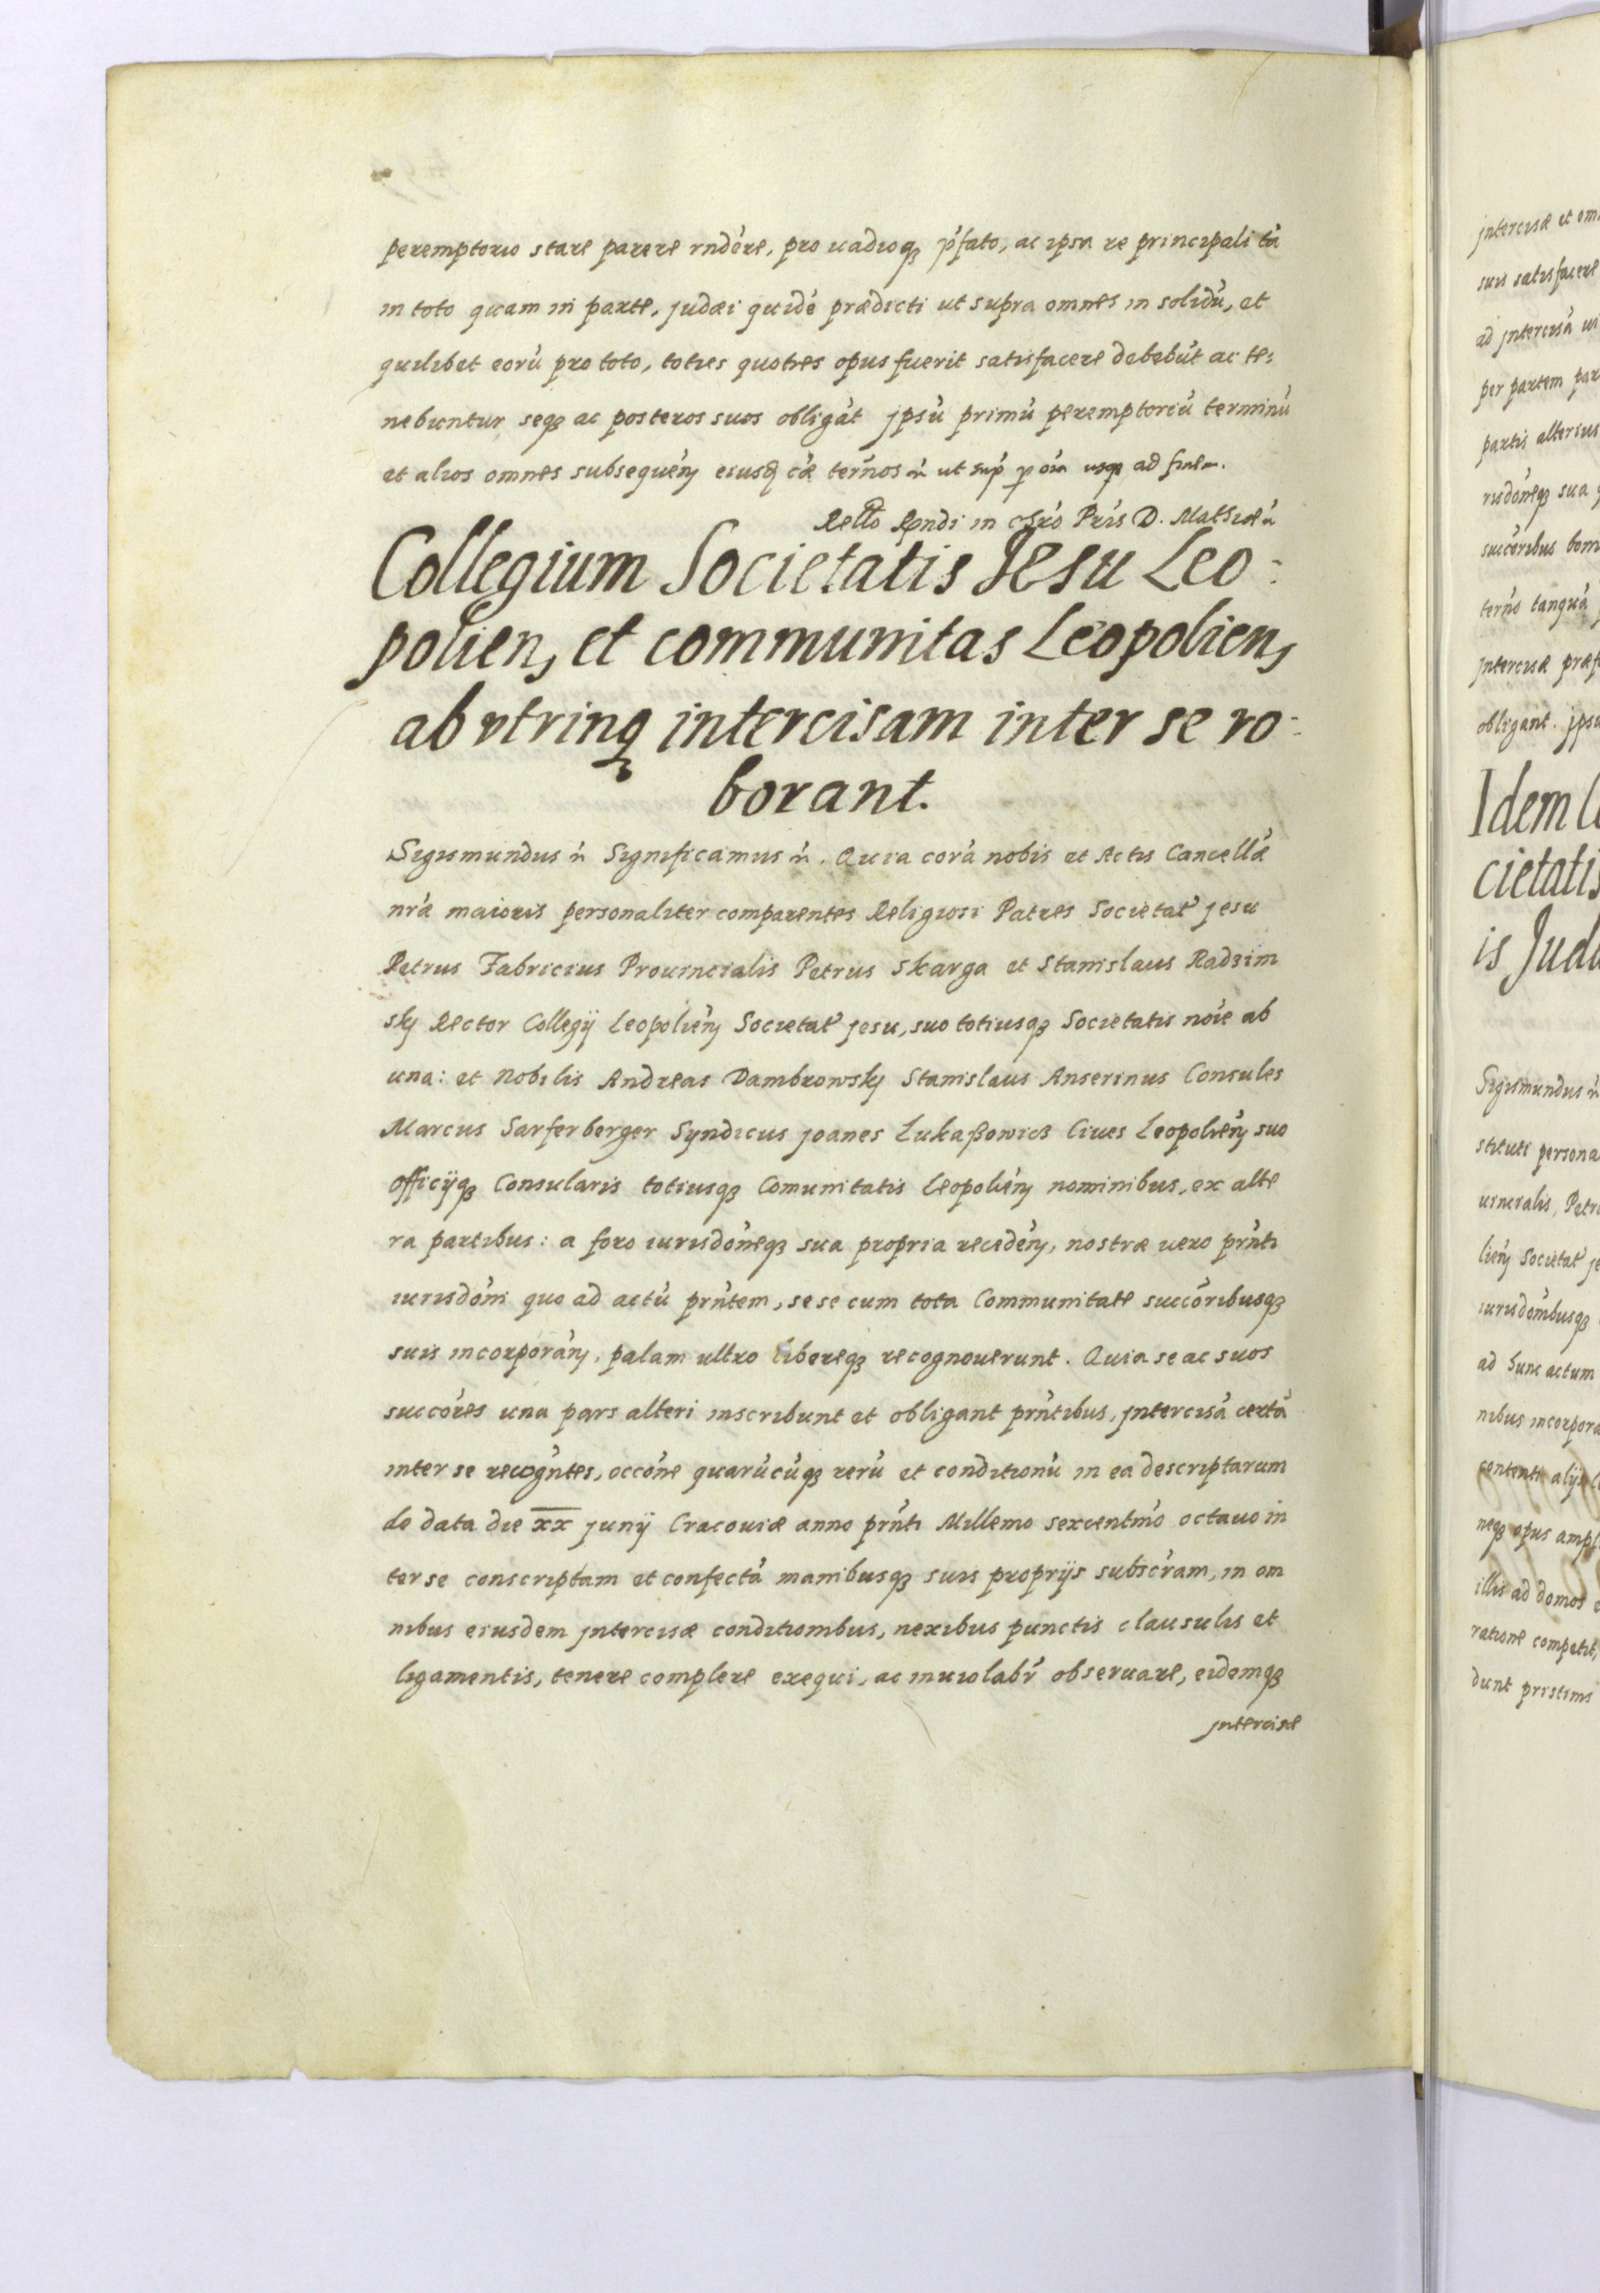 peremptorio stare parere rndére, pro uadioqȝ pŕfato, ac ipsa re principali tá
in toto quam in parte, judæi quidé prædicti ut supra omnes in solidú, et
quilibet eorú pro toto, toties quoties opus fuerit satisfacere debebút ac te:
nebuntur seqȝ ac posteros suos obligát jpsú primú peremptoriú terminú
et alios omnes subsequéń eiusqȝ cæ terńos ut sup oía usqȝ ad finem.
Rello Rndi in Chro Pris D. Mathiæ
Collegium Societatis Jesu Leo:
polien, et communitas Leopolien,
ab vtrinqȝ intercisam inter se ro:
borant.
Sigismundus Significamus . Quia corá nobis et Actis Cancellǽ
nrǽ maioris personaliter comparentes Religiosi Patres Societat́ jesu
Petrus Fabricius Prouincialis Petrus Skarga et Stanislaus Radzim
skj Rector Collegij Leopolień Societat́ jesu, suo totiusqȝ Societatis nóie ab
una: et Nobilis Andreas Dambrowskj Stanislaus Anserinus Consules
Marcus Sarferberger Syndicus joanes Lukaßowicz Ciues Leopolień suo
officijqȝ Consularis totiusqȝ Comunitatis Leopolień nominibus, ex alte
ra partibus: a foro iurisdóneqȝ sua propria recedéń, nostræ uero prńti
iurisdóni quo ad actú prńtem, sese cum tota Communitate succóribusqȝ
suis incorporáń, palam ultro libereqȝ recognouerunt. Quia se ac suos
succóres una pars alteri inscribunt et obligant prńtibus, jntercisá certá
inter se recogńtes, occóne quarúcúqȝ rerú et conditionú in ea descriptarum
de data die xx junij Cracouiæ anno prńti Millemo sexcentmó octauo in
ter se conscriptam et confectá manibusqȝ suis proprijs subscŕam, in om
nibus eiusdem jntercisæ conditionibus, nexibus punctis clausulis et
ligamentis, tenere complere exequi, ac inuiolabŕ obseruare, eidemqȝ
jntercisæ
jntercisæ et om
suis satisfacere
ad jntercisá
per partem par
partis alterius
risdóneqȝ sua
succóribus bon
terńo tanquá
jntercisæ præf
obligant. jpsu
Idem
cietatis
is Jud
Sigismundus
stituti persona
uincialis, Petr
lień Societat́ je
iurisdónibusqȝ
ad hunc actum
nibus incorpora
contenti alijs
neqȝ opus ampl
illis ad domos
ratione competit,
dunt pristini